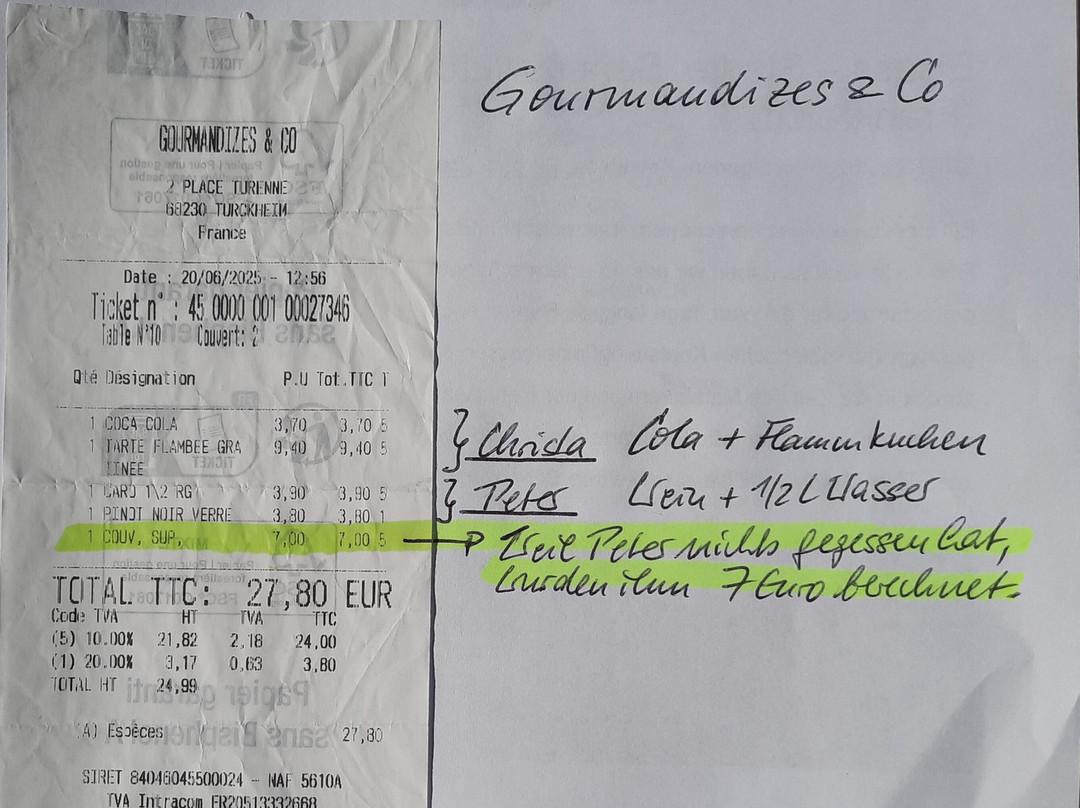 Gourmandizes & Co
GOURMANDIZES & CO
2 PLACE TURENNE
68230 TURCKHEIM
France
Date : 20/06/2025 - 12:56
Ticket n° : 45 0000 001 00027346
Table N°10 Couvert: 2
Qté Désignation P.U Tot.TTC T
1 COCA COLA 3,70 3,70 5
1 TARTE FLAMBEE GRA 9,40 9,40 5
TINEE
} Christa Cola + Flammkuchen
1 CARO 1\2 RG 3,90 3,90 5
1 PINOT NOIR VERRE 3,80 3,80 1
} Peter Wein + 1/2 L Wasser
1 COUV, SUP, 7,00 7,00 5
Weil Peter nichts gegessen hat,
wurden ihm 7 Euro berechnet.
TOTAL TTC: 27,80 EUR
Code TVA HT TVA TTC
(5) 10.00% 21,82 2,18 24,00
(1) 20.00% 3,17 0,63 3,80
TOTAL HT 24,99
(A) Espèces 27,80
SIRET 84046045500024 - NAF 5610A
TVA Intracom FR20513332668
TICKET
Papier garanti
sans Bisphénol A